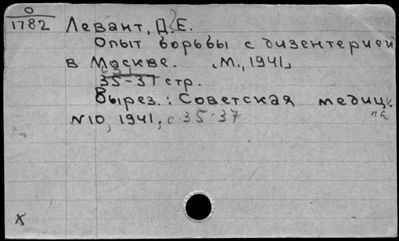 0
1782 Левант, Д. Е.
Опыт борьбы с дизентерией
в Москве. М., 1941,
35-37 стр.
Вырез.: Советская медиц
№10, 1941, с 35-37
х